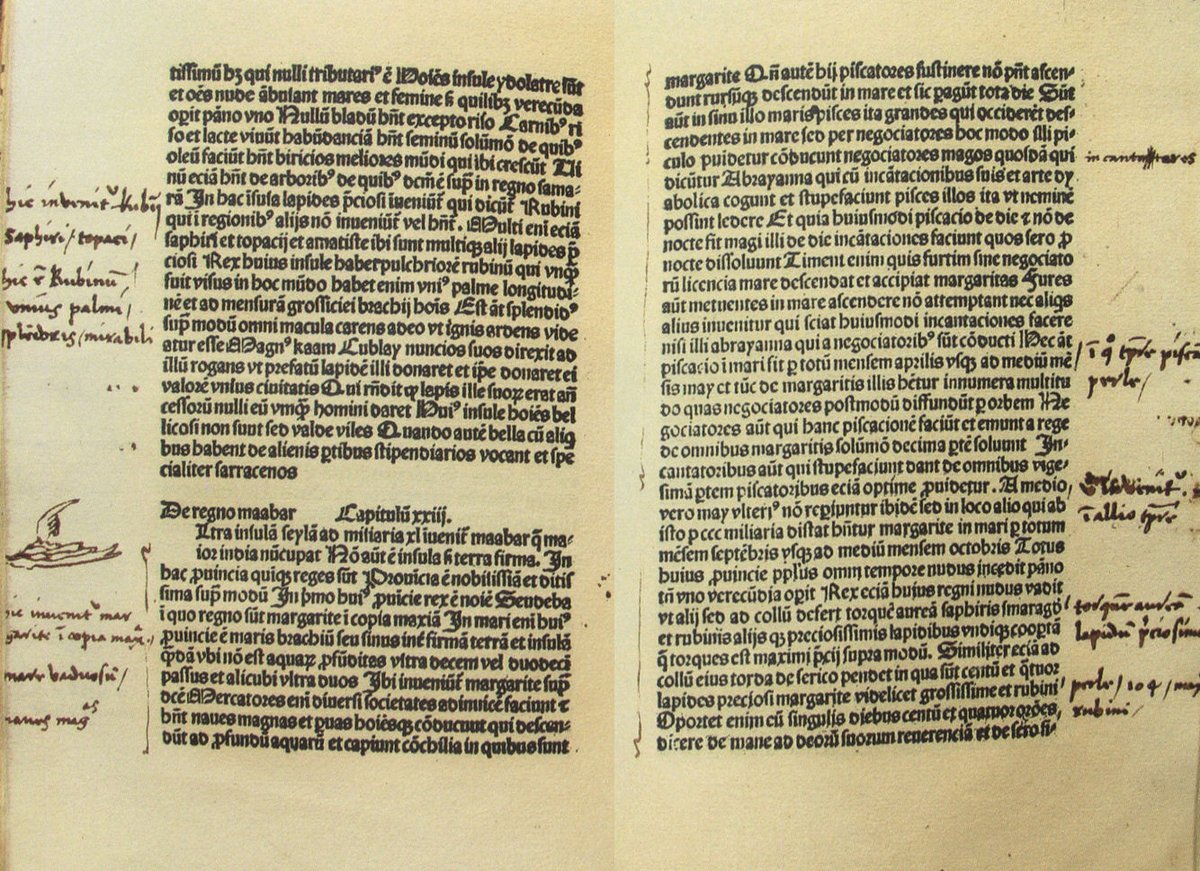 tissimū bȝ qui nulli tributariꝰ ē Hoiēs insule ydolatre sūt
et oēs nude ābulant mares et femine sꝫ quilibȝ verecūda
opit pāno vno Nullū bladū hñt excepto riso Carnibꝰ ri
so et lacte viuūt habūdanciā hñt seminū solūmō de quibꝰ
oleū faciūt hñt biricios meliores mūdi qui ibi crescūt Ui
nū eciā hñt de arboribꝰ de quibꝰ dcm̄ ē supͣ in regno sama-
rā In hac īsula lapides p̄ciosi īueniūt̄ qui dicūt̄ Rubini
qui ī regionibꝰ alijs nō inueniūt̄ vel hñt. Multi eni eciā
saphiri et topacij et amatiste ibi sunt multiqꝫ alij lapides p̄
ciosi Rex huius insule habet pulchriorē rubinū qui vnqꝫ
fuit visus in hoc mūdo habet enim vniꝰ palme longitudi-
nē et ad mensurā grossiciei brachij hoīs Est āt splendidꝰ
supͣ modū omni macula carens adeo vt ignis ardens vide
atur esse Magnꝰ kaam Cublay nuncios suos direxit ad
illū rogans vt prefatū lapidē illi donaret et ip̄e donaret ei
valorē vnius ciuitatis Qui rn̄dit qꝫ lapis ille suoꝝ erat an̄
cessorū nulli eū vmqꝫ homini daret Huiꝰ insule hoiēs bel
licosi non sunt sed valde viles Quando autē bella cū aliq̄
bus habent de alienis ꝑtibus stipendiarios vocant et spe
cialiter sarracenos
De regno maabar Capitulū xxiij.
Ultra insulā seylā ad miliaria xl iuenit̄ maabar q̄ ma-
ior india nūcupat̄ Nō aūt ē insula sꝫ terra firma. In
hac ꝓuincia quiqꝫ reges sūt Prouicia ē nobilissīa et ditis
sima supͣ modū In p̄mo huiꝰ ꝓuicie rex ē noiē Seudeba
i quo regno sūt margarite ī copia maxīa In mari eni huiꝰ
ꝓuincie ē maris brachiū seu sinus inẽ firmā terrā et insulā
q̄dā vbi nō est aquaꝝ ꝓfūditas vltra decem vel duodecī
passus et alicubi vltra duos Ibi inueniūt̄ margarite supͣ
dcē Mercatores eni diuersi societates adinuicē faciunt ⁊
hñt naues magnas et ꝑuas hoiēsqꝫ cōducunt qui descen-
dūt ad ꝓfundū aquarū et capiunt cōchilia in quibus sunt
hic invenit̄ Rubini
Saphiri / topaci /
hic ē Rubinū
vnius palmi /
splēdoris / mirabili
hic inuenit̄ mar
garite ī copia maxͣ
mare vadosū /
naues magͣs
margarite Qn̄ autē hij piscatores sustinere nō p̄nt ascen-
dunt rursūqꝫ descendūt in mare et sic ꝑagūt tota die Sūt
aūt in sinu illo maris pisces ita grandes qui occiderēt des-
cendentes in mare sed per negociatores hoc modo illi pi-
culo ꝓuidetur cōducunt negociatores magos quosdā qui
dicūtur Abrayanna qui cū incātacionibus suis et arte dy
abolica cogunt et stupefaciunt pisces illos ita vt neminē
possint ledere Et quia huiusmodi piscacio de die ⁊ nō de
nocte fit magi illi de die incātaciones faciunt quos sero ꝓ
nocte dissoluunt Timent enim quis furtim sine negociato
rū licencia mare descendat et accipiat margaritas Fures
aūt metuentes in mare ascendere nō attemptant nec aliqs
alius inuenitur qui sciat huiusmodi incantaciones facere
nisi illi abrayanna qui a negociatoribꝰ sūt cōducti Hec āt
piscacio ī mari sit ꝑ totū mensem aprilis vsqꝫ ad mediū mē
sis may et tūc de margaritis illis hētur innumera multitu
do quas negociatores postmodū diffundūt ꝑ orbem Ne
gociatores aūt qui hanc piscacionē faciūt et emunt a rege
de omnibus margaritis solūmō decima ꝑtē soluunt In-
cantatoribus aūt qui stupefaciunt dant de omnibus vige-
simā ꝑtem piscatoribus eciā optime ꝓuidetur. A medio
vero may vlteriꝰ nō reperiuntur ibidē sed in loco alio qui ab
isto ꝑ ccc miliaria distat hñtur margarite in mari ꝑ totum
mēsem septēbris vsqꝫ ad mediū mensem octobris Totus
huius ꝓuincie pplus omni tempore nudus incedit pāno
tn̄ vno verecūdia opit Rex eciā huius regni nudus vadit
vt alij sed ad collū defert torquē aureā saphiris smaragdꝭ
et rubinis alijsqꝫ preciosissimis lapidibus vndiqꝫ coopertā
q̄ torques est maximi p̄cij supra modū. Similiter eciā ad
collū eius corda de serico pendet in qua sūt centū et q̄tuor
lapides preciosi margarite videlicet grossissime et rubini
Oportet enim cū singulis diebus centū et quatuor orōes
dicere de mane ad deorū suorum reuerenciā et de sero si-
in cantatores
ī qͦ tp̄re piscāt̄
perle /
invenit̄
ī allio tp̄re
torquē aureā
lapidū p̄ciosim
perle / 104 /
rubini /